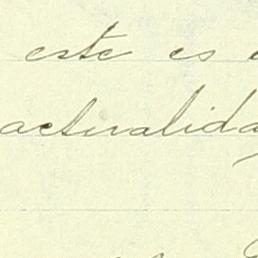 este es
actualida